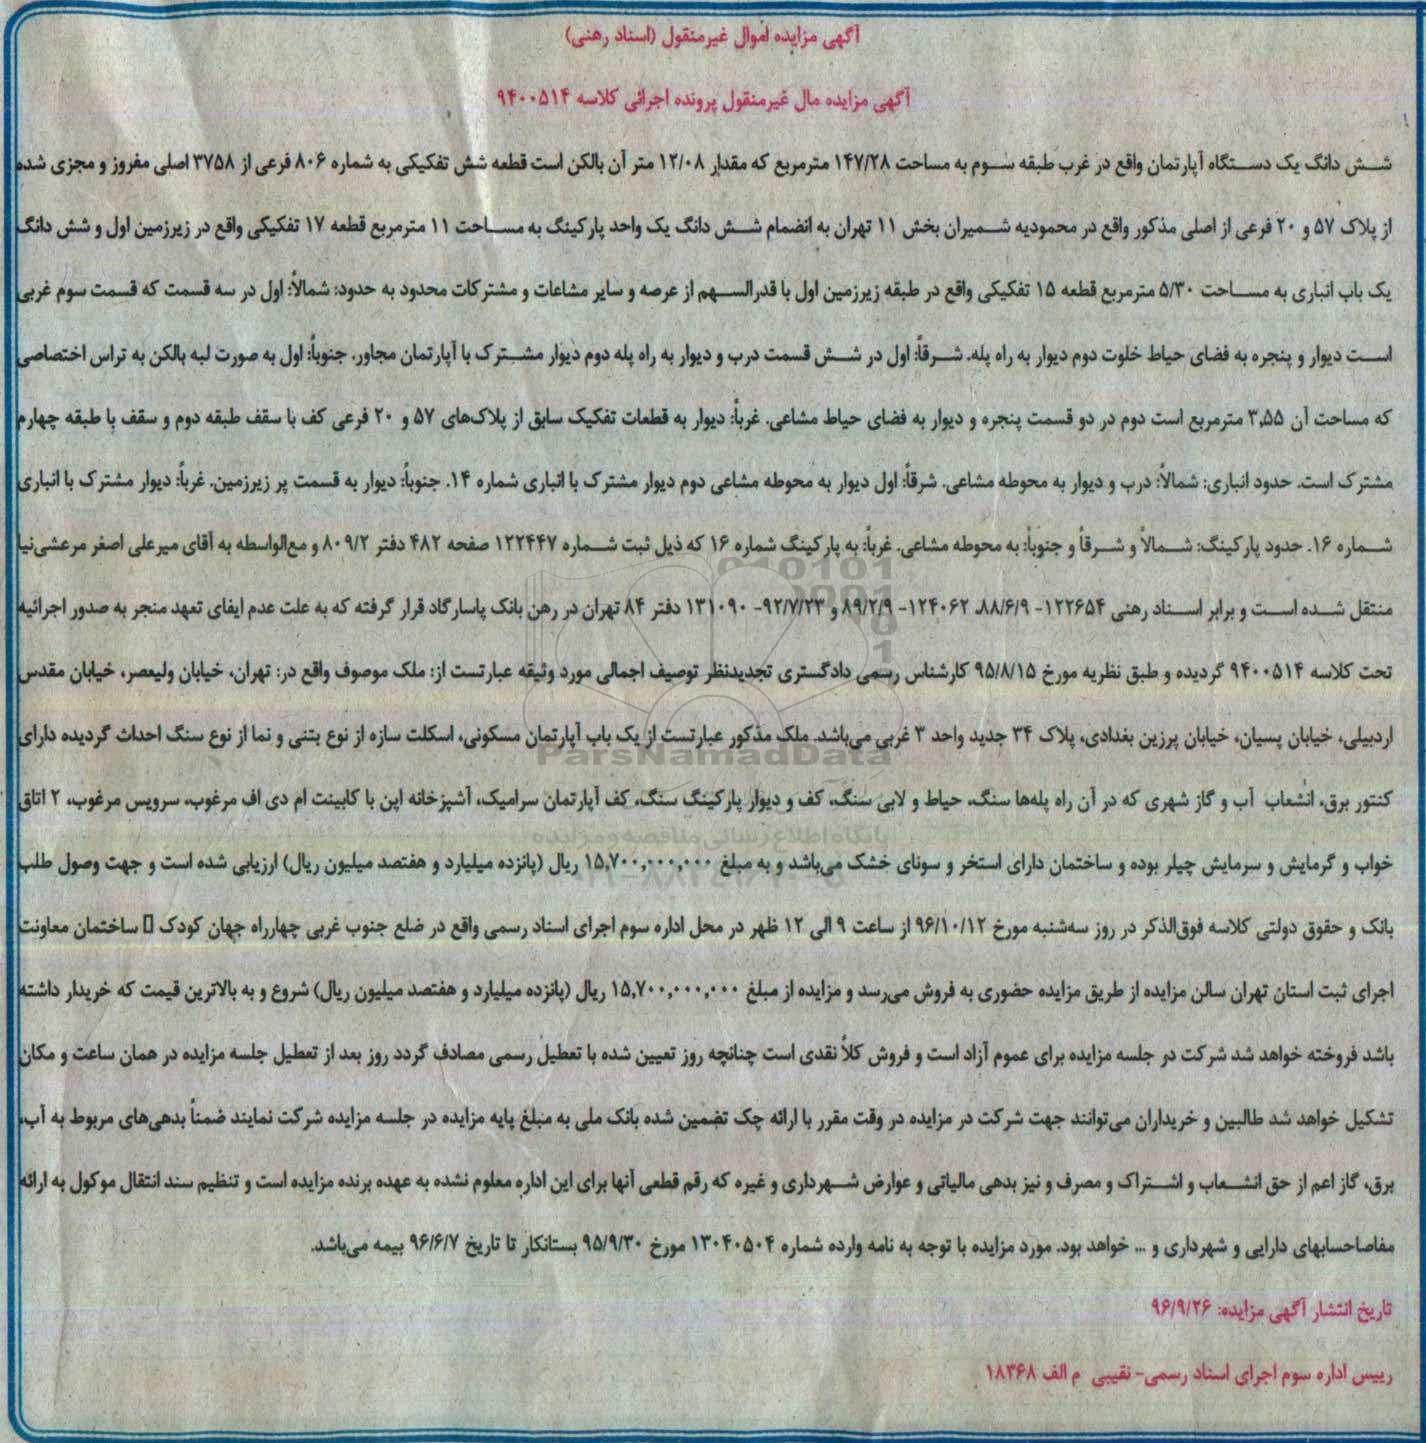 آگهی مزایده اموال غیرمنقول (اسناد رهنی)
آگهی مزایده مال غیرمنقول پرونده اجرائی کلاسه ۹۴۰۰۵۱۴
شش دانگ یک دستگاه آپارتمان واقع در غرب طبقه سوم به مساحت ۱۴۷/۲۸ مترمربع که مقدار ۱۲/۰۸ متر آن بالکن است قطعه شش تفکیکی به شماره ۸۰۶ فرعی از ۳۷۵۸ اصلی مفروز و مجزی شده
از پلاک ۵۷ و ۲۰ فرعی از اصلی مذکور واقع در محمودیه شمیران بخش ۱۱ تهران به انضمام شش دانگ یک واحد پارکینگ به مساحت ۱۱ مترمربع قطعه ۱۷ تفکیکی واقع در زیرزمین اول و شش دانگ
یک باب انباری به مساحت ۵/۳۰ مترمربع قطعه ۱۵ تفکیکی واقع در طبقه زیرزمین اول با قدرالسهم از عرصه و سایر مشاعات و مشترکات محدود به حدود: شمالاً: اول در سه قسمت که قسمت سوم غربی
است دیوار و پنجره به فضای حیاط خلوت دوم دیوار به راه پله. شرقاً: اول در شش قسمت درب و دیوار به راه پله دوم دیوار مشترک با آپارتمان مجاور. جنوباً: اول به صورت لبه بالکن به تراس اختصاصی
که مساحت آن ۳,۵۵ مترمربع است دوم در دو قسمت پنجره و دیوار به فضای حیاط مشاعی. غرباً: دیوار به قطعات تفکیک سابق از پلاک‌های ۵۷ و ۲۰ فرعی کف با سقف طبقه دوم و سقف با طبقه چهارم
مشترک است. حدود انباری: شمالاً: درب و دیوار به محوطه مشاعی. شرقاً: اول دیوار به محوطه مشاعی دوم دیوار مشترک با انباری شماره ۱۴. جنوباً: دیوار به قسمت پر زیرزمین. غرباً: دیوار مشترک با انباری
شماره ۱۶. حدود پارکینگ: شمالاً و شرقاً و جنوباً: به محوطه مشاعی. غرباً: به پارکینگ شماره ۱۶ که ذیل ثبت شماره ۱۲۲۴۴۷ صفحه ۴۸۲ دفتر ۸۰۹/۲ و مع‌الواسطه به آقای میرعلی اصغر مرعشی‌نیا
منتقل شده است و برابر اسناد رهنی ۱۲۲۶۵۴- ۸۸/۶/۹، ۱۲۴۰۶۲- ۸۹/۲/۹ و ۹۲/۷/۲۳- ۱۳۱۰۹۰ دفتر ۸۴ تهران در رهن بانک پاسارگاد قرار گرفته که به علت عدم ایفای تعهد منجر به صدور اجرائیه
تحت کلاسه ۹۴۰۰۵۱۴ گردیده و طبق نظریه مورخ ۹۵/۸/۱۵ کارشناس رسمی دادگستری تجدیدنظر توصیف اجمالی مورد وثیقه عبارتست از: ملک موصوف واقع در: تهران، خیابان ولیعصر، خیابان مقدس
اردبیلی، خیابان پسیان، خیابان پرزین بغدادی، پلاک ۳۴ جدید واحد ۳ غربی می‌باشد. ملک مذکور عبارتست از یک باب آپارتمان مسکونی، اسکلت سازه از نوع بتنی و نما از نوع سنگ احداث گردیده دارای
کنتور برق، انشعاب آب و گاز شهری که در آن راه پله‌ها سنگ، حیاط و لابی سنگ، کف و دیوار پارکینگ سنگ، کف آپارتمان سرامیک، آشپزخانه اپن با کابینت ام دی اف مرغوب، سرویس مرغوب، ۲ اتاق
خواب و گرمایش و سرمایش چیلر بوده و ساختمان دارای استخر و سونای خشک می‌باشد و به مبلغ ۱۵,۷۰۰,۰۰۰,۰۰۰ ریال (پانزده میلیارد و هفتصد میلیون ریال) ارزیابی شده است و جهت وصول طلب
بانک و حقوق دولتی کلاسه فوق‌الذکر در روز سه‌شنبه مورخ ۹۶/۱۰/۱۲ از ساعت ۹ الی ۱۲ ظهر در محل اداره سوم اجرای اسناد رسمی واقع در ضلع جنوب غربی چهارراه جهان کودک ▯ ساختمان معاونت
اجرای ثبت استان تهران سالن مزایده از طریق مزایده حضوری به فروش می‌رسد و مزایده از مبلغ ۱۵,۷۰۰,۰۰۰,۰۰۰ ریال (پانزده میلیارد و هفتصد میلیون ریال) شروع و به بالاترین قیمت که خریدار داشته
باشد فروخته خواهد شد شرکت در جلسه مزایده برای عموم آزاد است و فروش کلاً نقدی است چنانچه روز تعیین شده با تعطیل رسمی مصادف گردد روز بعد از تعطیل جلسه مزایده در همان ساعت و مکان
تشکیل خواهد شد طالبین و خریداران می‌توانند جهت شرکت در مزایده در وقت مقرر با ارائه چک تضمین شده بانک ملی به مبلغ پایه مزایده در جلسه مزایده شرکت نمایند ضمناً بدهی‌های مربوط به آب،
برق، گاز اعم از حق انشعاب و اشتراک و مصرف و نیز بدهی مالیاتی و عوارض شهرداری و غیره که رقم قطعی آنها برای این اداره معلوم نشده به عهده برنده مزایده است و تنظیم سند انتقال موکول به ارائه
مفاصاحسابهای دارایی و شهرداری و ... خواهد بود. مورد مزایده با توجه به نامه وارده شماره ۱۳۰۴۰۵۰۴ مورخ ۹۵/۹/۳۰ بستانکار تا تاریخ ۹۶/۶/۷ بیمه می‌باشد.
تاریخ انتشار آگهی مزایده: ۹۶/۹/۲۶
رییس اداره سوم اجرای اسناد رسمی- نقیبی م الف ۱۸۳۶۸
ParsNamadData
پایگاه اطلاع رسانی مناقصه و مزایده